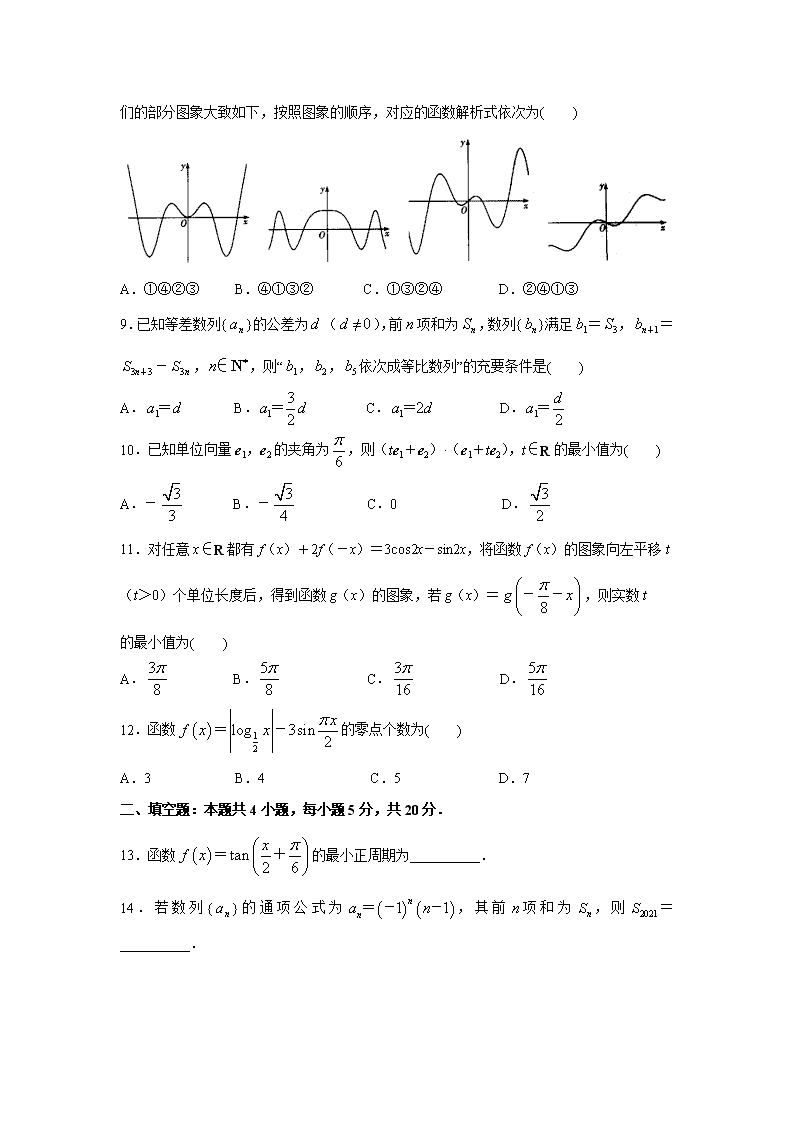 们的部分图象大致如下，按照图象的顺序，对应的函数解析式依次为(　　)
y x O y x O y x O y x O
A．①④②③　B．④①③②　C．①③②④　D．②④①③
9.已知等差数列{aₙ}的公差为d（d≠0），前n项和为Sₙ，数列{bₙ}满足b₁＝S₃，bₙ₊₁＝
S₃ₙ₊₃－S₃ₙ，n∈N*，则“b₁，b₂，b₅依次成等比数列”的充要条件是(　　)
A．a₁=d　B．a₁=3/2 d　C．a₁=2d　D．a₁=d/2
10．已知单位向量e₁，e₂的夹角为π/6，则（te₁+e₂）·（e₁+te₂），t∈R的最小值为(　　)
A．-√3/3　B．-√3/4　C．0　D．√3/2
11．对任意x∈R都有f（x）＋2f（－x）＝3cos2x－sin2x，将函数f（x）的图象向左平移t
（t＞0）个单位长度后，得到函数g（x）的图象，若g（x）＝g(-π/8-x)，则实数t
的最小值为(　　)
A．3π/8　B．5π/8　C．3π/16　D．5π/16
12．函数f(x)=|log_{1/2} x|-3sin πx/2 的零点个数为(　　)
A．3　B．4　C．5　D．7
二、填空题：本题共4小题，每小题5分，共20分．
13．函数f(x)=tan(x/2+π/6)的最小正周期为__________．
14．若数列{aₙ}的通项公式为aₙ=(-1)ⁿ(n-1)，其前n项和为Sₙ，则S₂₀₂₁＝
__________．